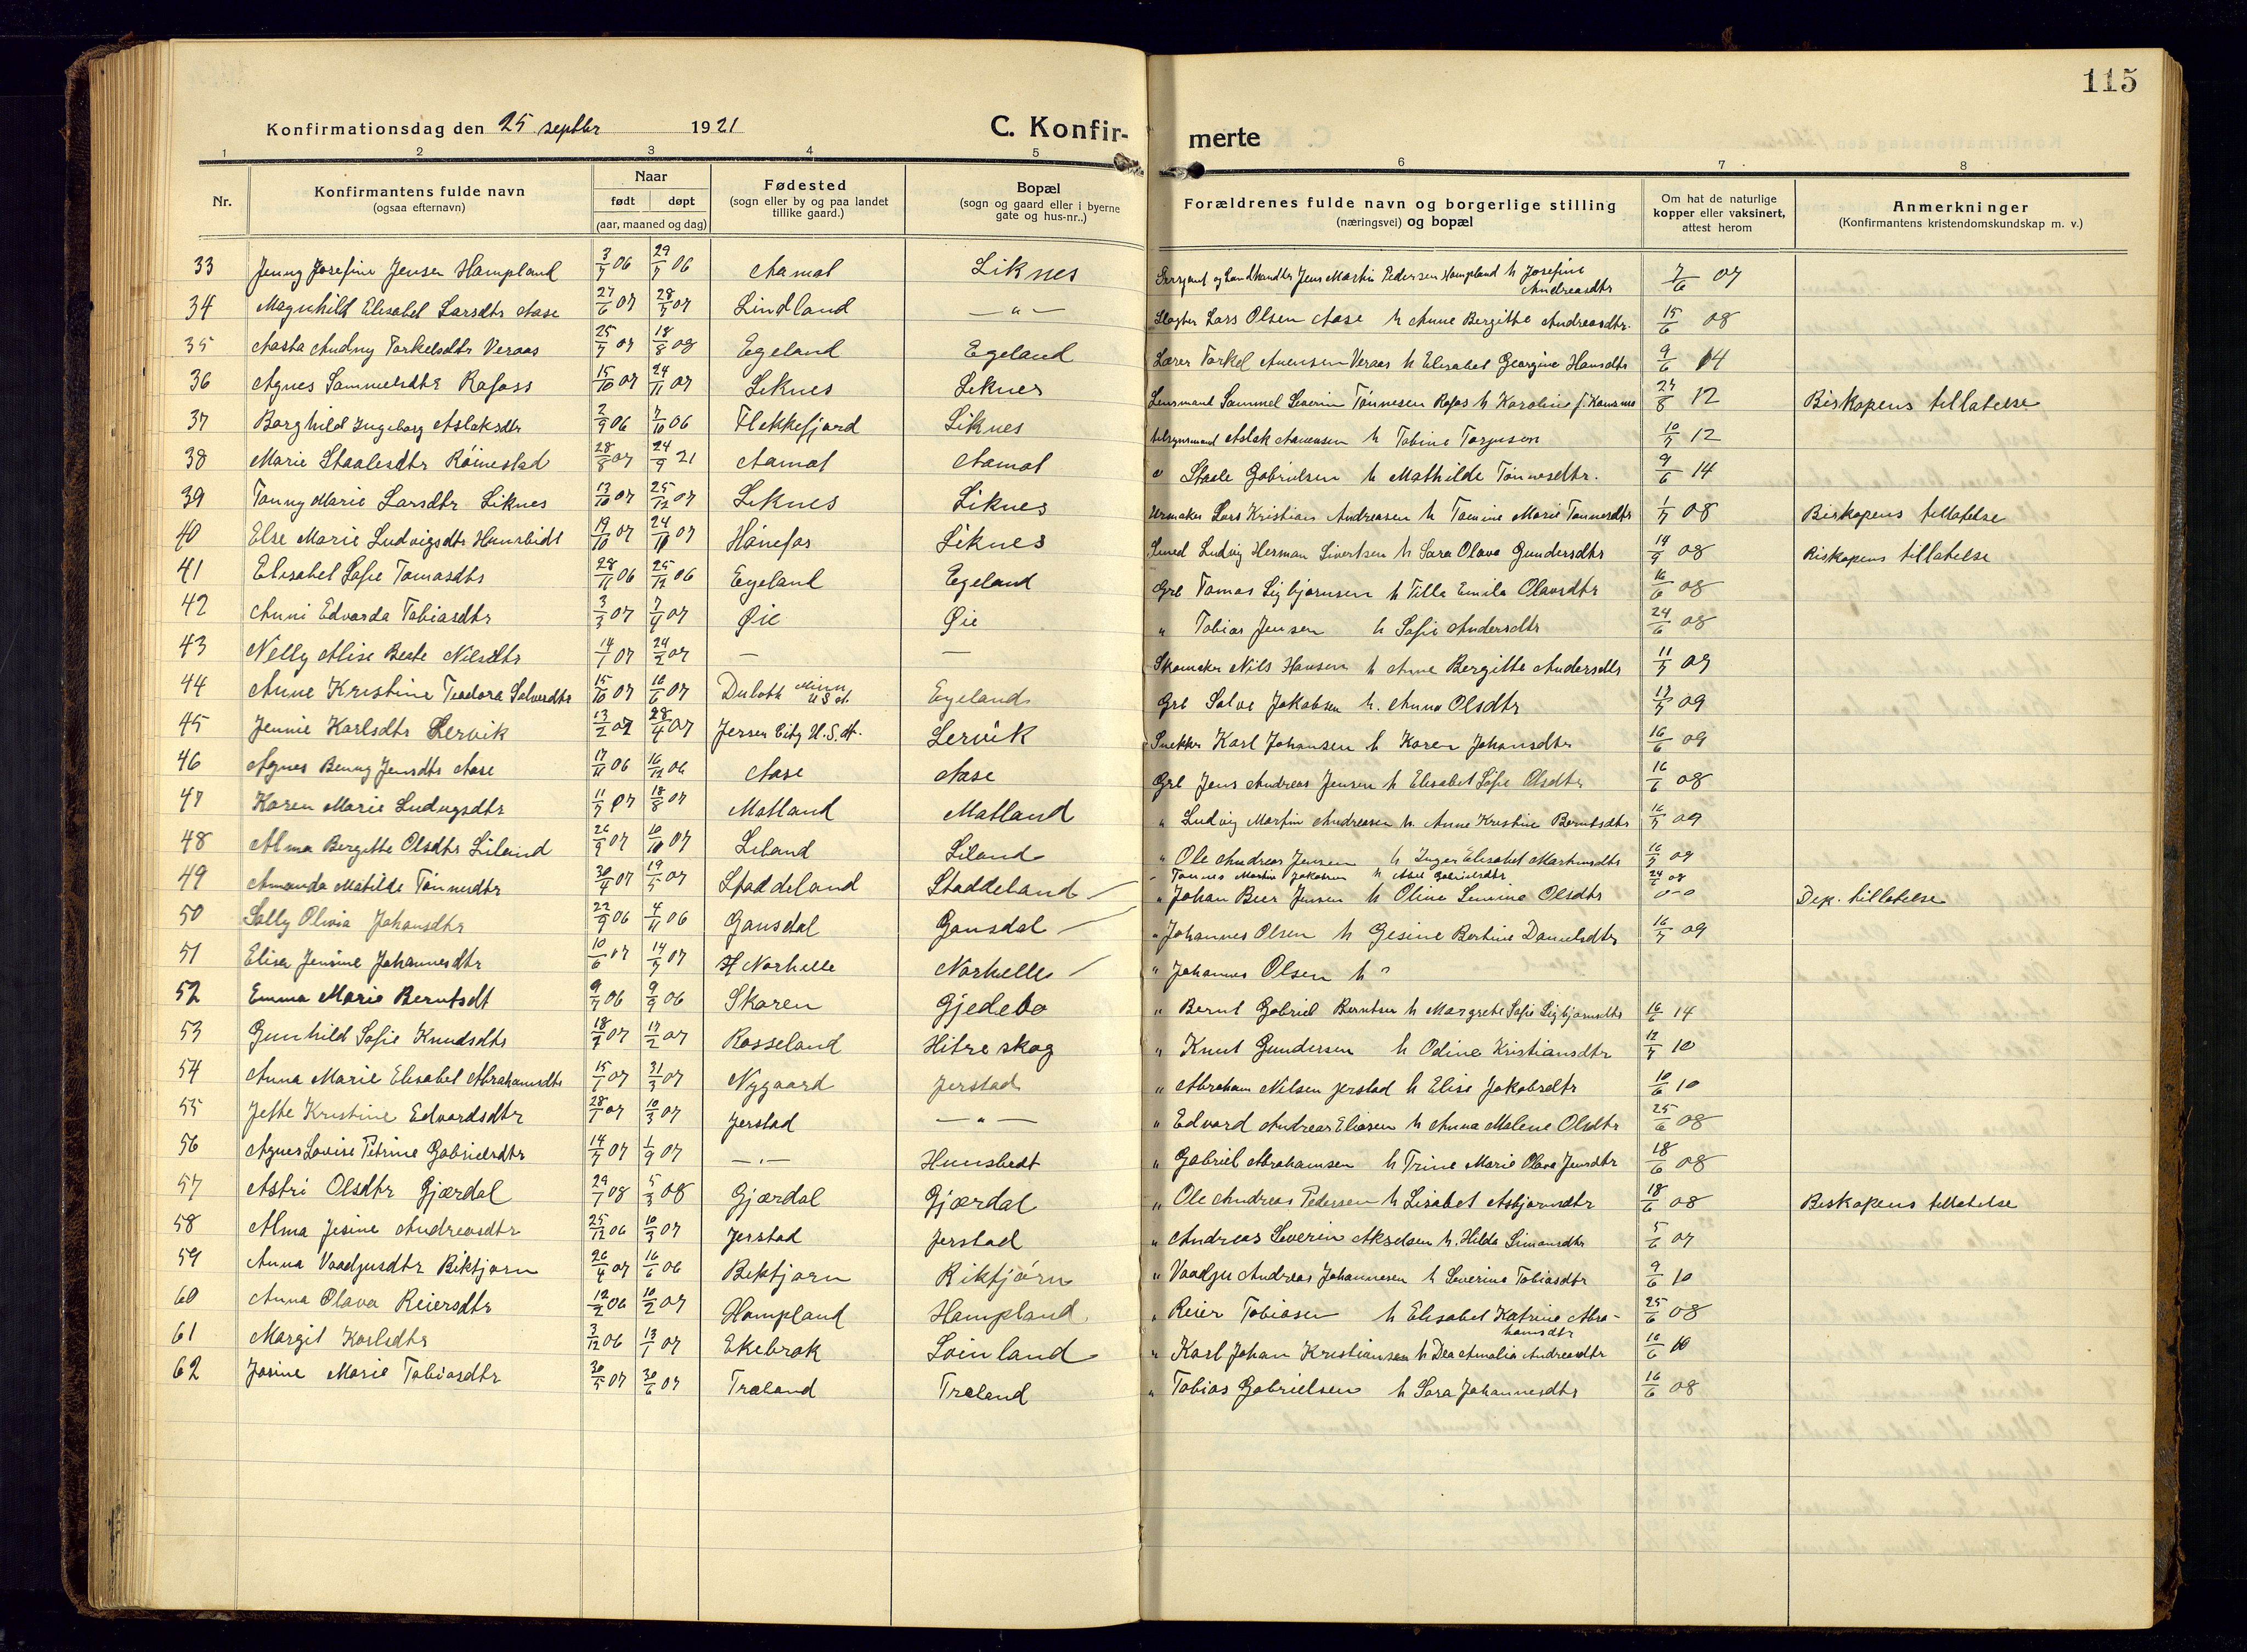 115
Konfirmationsdag den 25 septbr 1921
C. Konfir-
merte
1 2 3 4 5 6 7 8
Nr.
Konfirmantens fulde navn
(ogsaa efternavn)
Naar
født døpt
(aar, maaned og dag)
Fødested
(sogn eller by og paa landet
tillike gaard.)
Bopæl
(sogn og gaard eller i byerne
gate og hus-nr..)
Forældrenes fulde navn og borgerlige stilling
(næringsvei) og bopæl
Om hat de naturlige
kopper eller vaksinert,
attest herom
Anmerkninger
(Konfirmantens kristendomskundskap m. v.)
33 Jenny Josefine Jensen Hampland 3/7 06 29/7 06 Aamot Liknes Jens Martin Pedersen Hampland h Josefine Andreasdtr 7/6 07
34 Magnhild Elisabet Larsdtr Aase 27/6 07 28/7 07 Lindland — " — Lars Olsen Aase h Anne Bergitte Andreasdtr. 15/6 08
35 Aasta Audny Torkelsdtr Veraas 25/7 07 18/8 08 Egeland Egeland Lærer Torkel Aanensen Veraas h Elisabet Georgine Hansdtr 9/6 14
36 Agnes Sammuelsdtr Rafoss 15/10 07 24/11 07 Liknes Liknes Lensmand Sammel Severin Tønnesen Rafos h Karoline f. 27/8 12 Biskopens tillatelse
37 Borghild Ingeborg Aslaksdtr 2/9 06 7/10 06 Flekkefjord Liknes Aslak Aanensen h Tobine Torjusen 10/7 12
38 Marie Staalesdtr Röinestad 28/8 07 24/9 21 Aamot Aamot " Staale Gabrielsen h Mathilde Tönnesdtr. 9/6 14
39 Tonny Marie Larsdtr Liknes 13/10 07 25/12 07 Liknes Liknes Urmaker Lars Kristian Andreasen h Tomine Marie Tønnesdtr 1/7 08 Biskopens tillatelse
40 Else Marie Ludvigsdtr 19/10 07 24/11 07 Hånefos Liknes Smed Ludvig Herman Sivertsen h Sara Olava Gundersdtr 14/9 08 Biskopens tillatelse
41 Elisabet Sofie Tomasdtr 28/11 06 25/12 06 Egeland Egeland Grb Tomas Sigbjørnsen h Tilla Emila Olavsdtr 16/6 08
42 Anni Edvarda Tobiasdtr 3/3 07 7/4 07 Øie Øie " Tobias Jensen h Sofie Andersdtr 24/6 08
43 Nelly Alise Beate Nilsdtr 14/1 07 24/2 07 — — Skomaker Nils Hansen h Ane Bergitte Andersdtr 11/7 09
44 Anne Kristine Teodora Salvesdtr 15/10 07 16/6 07 Duluth Minn U.S.A. Egeland Grb Salve Jakobsen h. Anna Olsdtr 13/7 09
45 Jennie Karlsdtr Lervik 13/2 07 28/4 07 Jersey City U.S.A. Lervik Snekker Karl Johansen h Karen Johansdtr 16/6 09
46 Agnes Benny Jensdtr Aase 17/11 06 16/12 06 Aase Aase Grb Jens Andreas Jensen h Elisabet Sofie Olsdtr 16/6 08
47 Karen Marie Ludvigsdtr 11/7 07 18/8 07 Matland Matland " Ludvig Martin Andreasen h. Anne Kristine Berntsdtr 16/7 09
48 Alma Bergitte Olsdtr Liland 26/9 07 10/10 07 Liland Liland " Ole Andreas Jensen h Inger Elisabet Martinsdtr 16/7 09
49 Amanda Matilde Tönnesdtr 30/4 07 19/5 07 Staddeland Staddeland " Tønnes Martin Jakobsen h Gabrielsdtr 24/6 08
50 Solly Olivia Johansdtr 22/9 06 4/11 06 Gausdal Gausdal " Johan Beer Jensen h Oline Semine Olsdtr 0-0 Dep. tillatelse
51 Elise Jensine Johannesdtr 10/6 07 14/7 07 Norhelle Norhelle " Johannes Olsen h Gesine Bertine Danielsdtr 16/7 09
" Johannes Olsen h "
52 Emma Marie Berntsdt 9/7 06 9/9 06 Skaren Gjedebo " Bernt Gabriel Berntsen h Margrete Sofie Sigbjørnsdtr 16/6 14
53 Gunhild Sofie Knudsdtr 18/1 07 17/2 07 Rosseland Hitreskog " Knut Gundersen h Odine Kristiansdtr 12/7 10
54 Anna Marie Elisabet Abrahamsdtr 15/1 07 31/3 07 Nygaard Jerstad " Abraham Nilsen Jerstad h Elise Jakobsdtr 10/6 10
55 Jette Kristine Edvardsdtr 28/1 07 10/3 07 Jerstad — " — " Edvard Andreas Eliasen h Anna Malene Olsdtr 25/6 08
56 Agnes Lovise Petrine Gabrielsdtr 14/7 07 1/9 07 — " — Hunsbedt " Gabriel Abrahamsen h Trine Marie Olava Jensdtr 18/6 08
57 Astri Olsdtr Gjærdal 29/1 08 5/3 08 Gjærdal Gjærdal " Ole Andreas Pedersen h Lisabet Asbjørnsdtr 18/6 08 Biskopens tillatelse
58 Alma Jesine Andreasdtr 25/12 06 10/3 07 Jerstad Jerstad " Andreas Severin Akselsen h. Hilda Simonsdtr 5/6 07
59 Anna Vaadjusdtr Rikstjørn 26/4 07 16/6 06 Rikstjørn Rikstjørn " Vaadju Andreas Johannesen h Severine Tobiasdtr 9/6 10
60 Anna Olava Reiersdtr 12/2 06 10/2 07 Hampland Hampland. " Reier Tobiasen h Elisabet Katrine Abra-
hamsdtr 25/6 08
61 Margit Karlsdtr 3/12 06 13/1 07 Ekebrok Loinland " Karl Johan Kristiansen h Dea Amalia Andreasdtr 16/6 10
62 Josine Marie Tobiasdtr 30/5 07 30/6 07 Træland Træland " Tobias Gabrielsen h Sara Johannesdtr 16/6 08